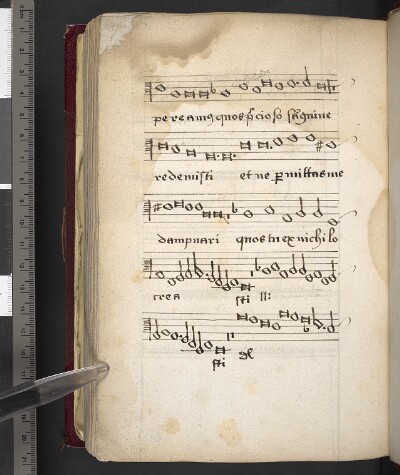 pereamus quos p̄cioso sāguine
redemisti et ne ꝑmittas me
dampnari quos tu ex nichilo
crea sti ⁝⁝
sti